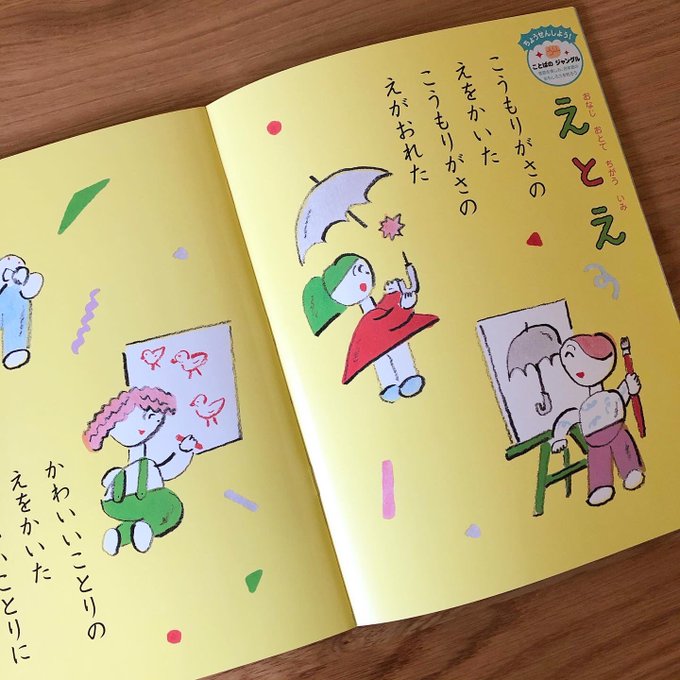 ちょうせんしよう!
ことばの ジャングル
おなじ おとで ちがう いみ
えとえ
こうもりがさの
えをかいた
こうもりがさの
えがおれた
かわいいことりの
えをかいた
いことりに